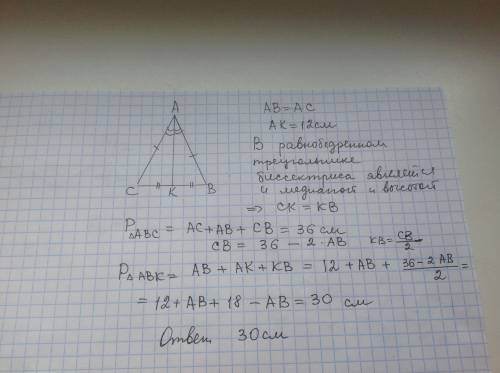 A
C K B
AB = AC
AK = 12 см
В равнобедренном
треугольнике
биссектриса является
и медианой и высотой
=> CK = KB
P△ABC = AC + AB + CB = 36 см
CB = 36 - 2·AB KB = CB/2
P△ABK = AB + AK + KB = 12 + AB + (36 - 2AB)/2 =
= 12 + AB + 18 - AB = 30 см
Ответ 30 см